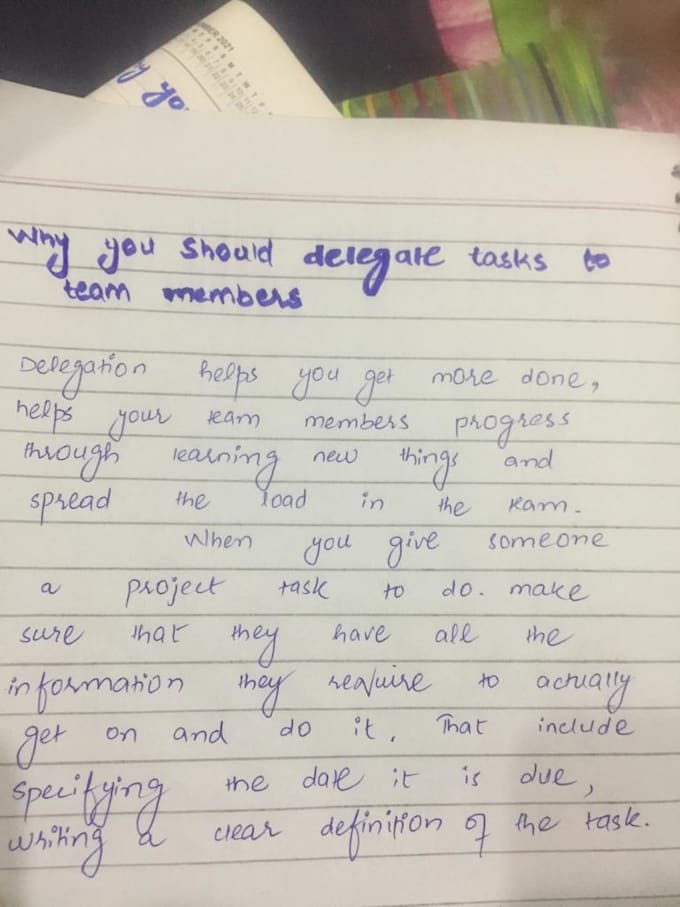 MBER 2021
Why you should delegate tasks to
team members
Delegation helps you get more done,
helps your team members progress
through learning new things and
spread the load in the team.
When you give someone
a project task to do. make
sure that they have all the
information they require to actually
get on and do it. That include
specifying the date it is due,
writing a clear definition of the task.